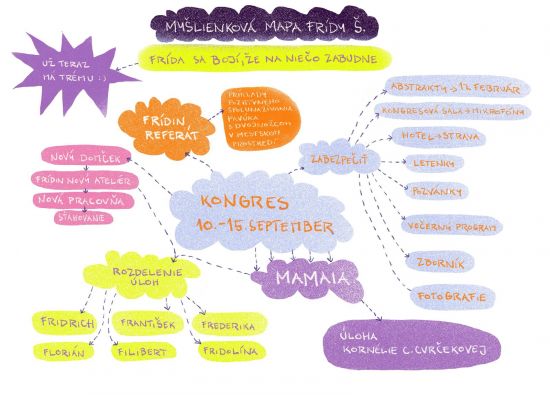 MYŠLIENKOVÁ MAPA FRÍDY Š.
FRÍDA SA BOJÍ, ŽE NA NIEČO ZABUDNE
UŽ TERAZ
MÁ TRÉMU :)
FRÍDIN
REFERÁT
PRÍKLADY
POZITÍVNEHO
SPOLUNAŽÍVANIA
PAVÚKA
S DVOJNOŽCOM
V MESTSKOM
PROSTREDÍ
ZABEZPEČIŤ
ABSTRAKTY → 12. FEBRUÁR
KONGRESOVÁ SÁLA → MIKROFÓNY
HOTEL → STRAVA
LETENKY
POZVÁNKY
VEČERNÝ PROGRAM
ZBORNÍK
FOTOGRAFIE
NOVÝ DOMČEK
FRÍDIN NOVÝ ATELIÉR
NOVÁ PRACOVŇA
SŤAHOVANIE
KONGRES
10.-15. SEPTEMBER
MAMAIA
ROZDELENIE
ÚLOH
FRIDRICH
FRANTIŠEK
FREDERIKA
FLORIÁN
FILIBERT
FRIDOLÍNA
ÚLOHA
KORNÉLIE C. CVRČEKOVEJ